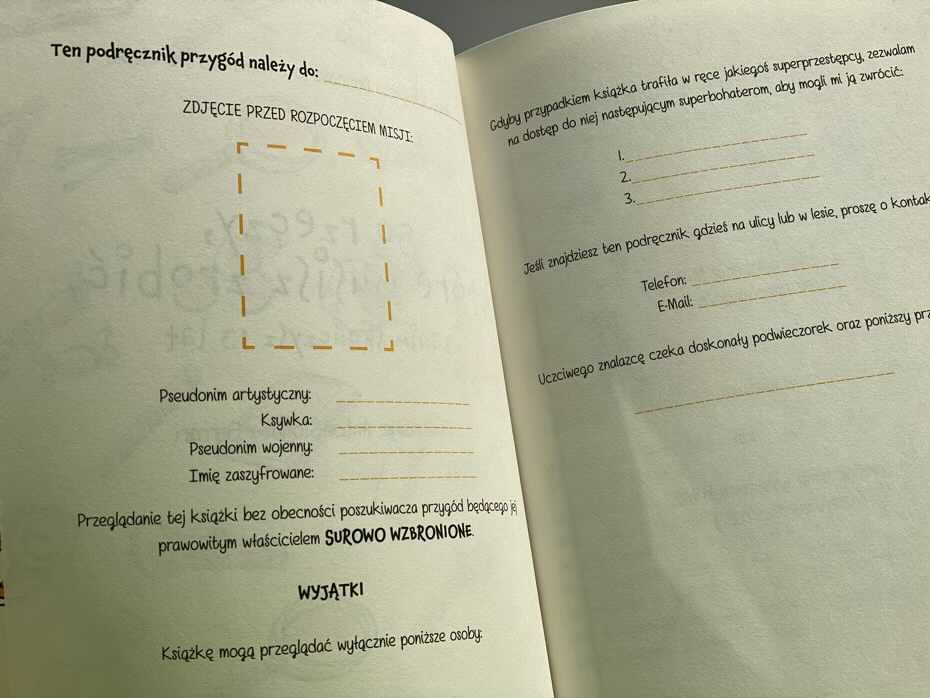 Ten podręcznik przygód należy do:
ZDJĘCIE PRZED ROZPOCZĘCIEM MISJI:
Pseudonim artystyczny:
Ksywka:
Pseudonim wojenny:
Imię zaszyfrowane:
Przeglądanie tej książki bez obecności poszukiwacza przygód będącego jej
prawowitym właścicielem SUROWO WZBRONIONE.
WYJĄTKI
Książkę mogą przeglądać wyłącznie poniższe osoby:
Gdyby przypadkiem książka trafiła w ręce jakiegoś superprzestępcy, zezwalam
na dostęp do niej następującym superbohaterom, aby mogli mi ją zwrócić:
1.
2.
3.
Jeśli znajdziesz ten podręcznik gdzieś na ulicy lub w lesie, proszę o
Telefon:
E-Mail:
Uczciwego znalazcę czeka doskonały podwieczorek oraz poniższy